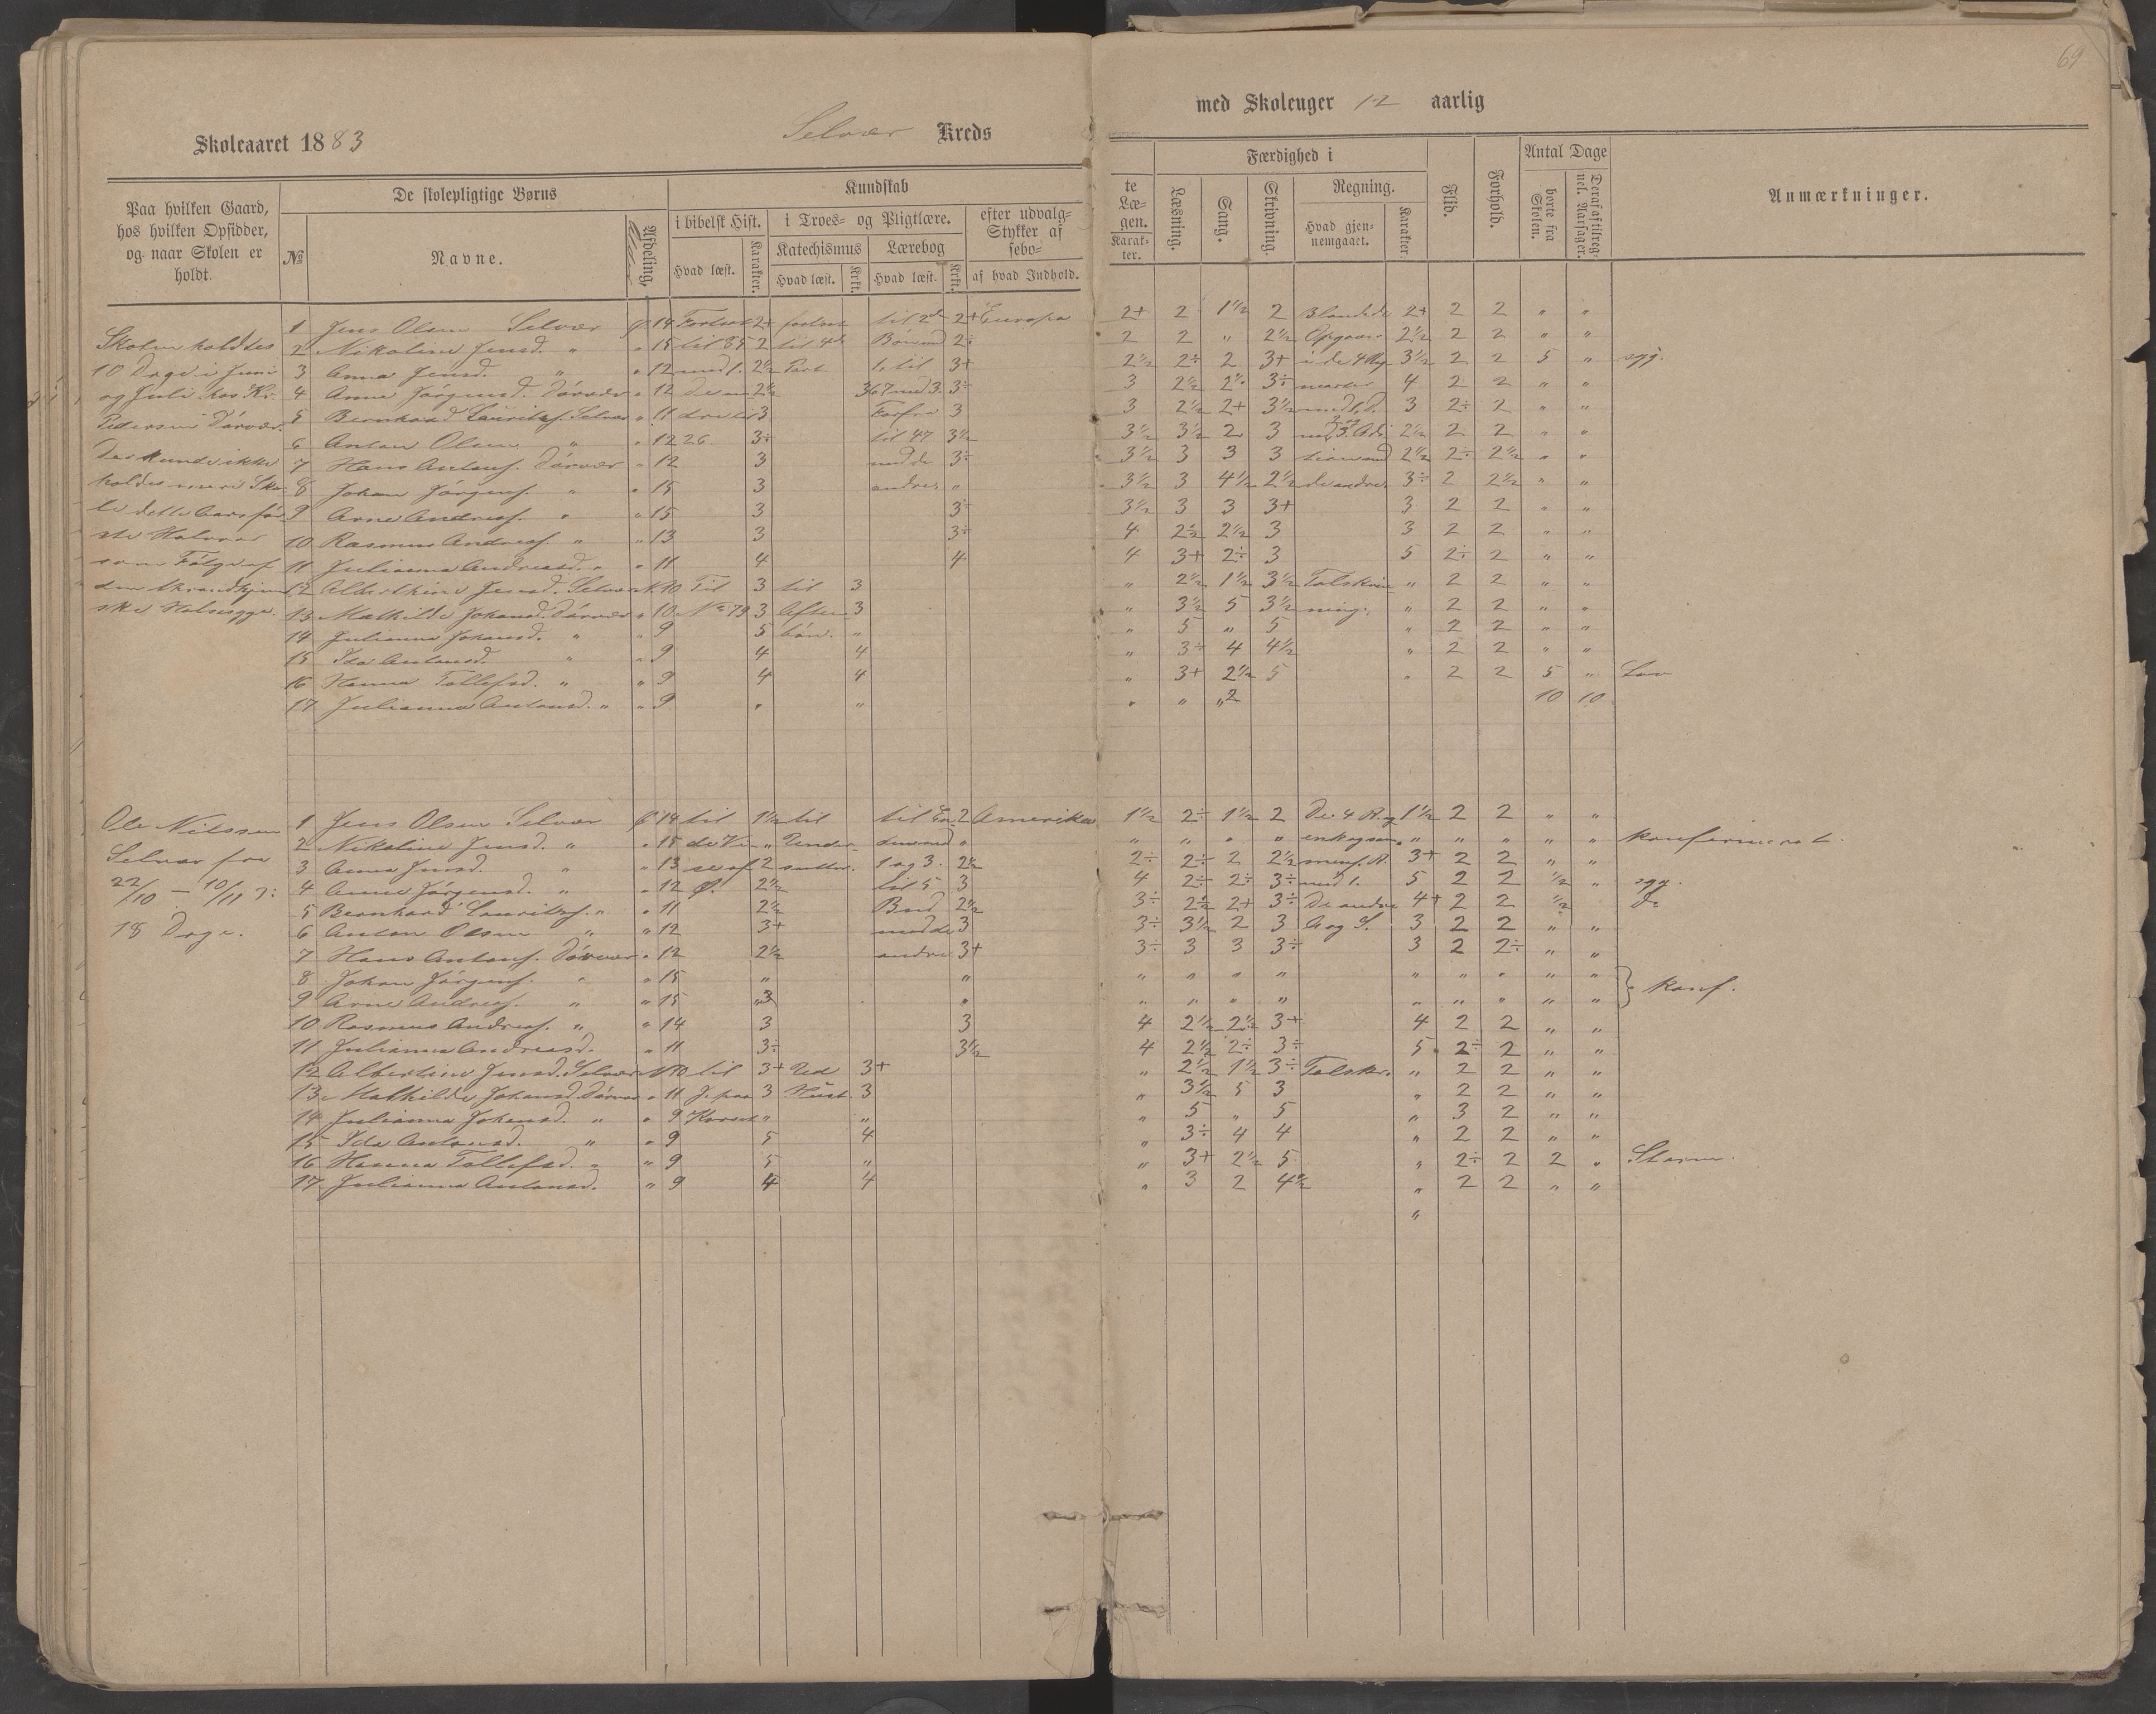 69
Skoleaaret 1883
Selvær Kreds
med Skoleuger 12 aarlig
Paa hvilken Gaard, hos hvilken Opsidder, og naar Skolen er holdt.
De skolepligtige Børns
№
Navne.
Afdeling.
Kundskab
i bibelsk Hist.
Hvad læst.
Karakter.
i Troes- og Pligtlære.
Katechismus
Hvad læst.
Krkt.
Lærebog
Hvad læst.
Krkt.
efter udvalg-
Stykker af
sebo-
af hvad Indhold.
te
Læ-
gen.
Karak-
ter.
Færdighed i
Læsning.
Sang.
Skrivning.
Regning.
Hvad gjen-
nemgaaet.
Karakter.
Flid.
Forhold.
Antal Dage
borte fra Skolen.
Deraf af tilreg-
nel. Aarsager.
Anmærkninger.
Skolen holdtes
10 Dage i Juni
og Juli hos Kr.
Pedersen Dørvær.
Der kunde ikke
holdes mere Sko-
le dette Aars før-
ste Halvaar
som Følge af
1 Jens Olsen Selvær 14 2+ til 2+ Europa 2+ 2 1½ 2 Blandede 2+ 2 2 " "
2 Nikoline Jensd. " " 15 til 35 2 2÷ 2 2 " 2½ Opgaver 2½ 2 2 " "
3 Anna Jensd. " " 12 med 1. 2½ Part 3+ 2½ 2÷ 2 3+ i de 4 Reg 3½ 2 2 5 " syg.
4 Anne Jørgensd. Dørvær " 12 2½ 3÷ 3 2½ 3÷ 4 2 2 " "
5 Bernhard Lauritsf. Selvær " 11 3 3 3 2½ 2+ 3½ 3 2÷ 2 " "
6 Anton Olsen " " 12 26 3÷ til 47 3½ 3½ 3½ 2 3 2½ 2 2 " "
7 Hans Antonf. Dørvær " 12 3 med de 3÷ 3½ 3 3 3 2½ 2÷ 2½ " "
8 Johan Jørgenf. " " 15 3 andre. " 3½ 3 4½ 2½ de andre. 3÷ 2 2½ " "
9 Arne Andreasf. " " 15 3 3÷ 3½ 3 3 3+ 3 2 2 " "
10 Rasmus Andreasf. " " 13 3 3÷ 4 2½ 2½ 3 3 2 2 " "
11 Julianna Andreasd. " " 11 4 4 4 3+ 2÷ 3 5 2÷ 2 " "
12 Albertine Jensd. Selvær 10 Til 3 til 3 " 2½ 1½ 3½ Talskriv- " 2 2 " "
13 Mathilde Johansd. Dørvær " 10 № 79 3 Aften 3 " 3½ 5 3½ ning. " 2 2 " "
14 Julianna Johansd. " " 9 5 bøn. " " 5 " 5 " 2 2 " "
15 Ida Antonsd. " " 9 4 4 " 3÷ 4 4½ " 2 2 " "
16 Hanna Tollefsd. " " 9 4 4 " 3+ 2½ 5 " 2 2 5 "
17 Julianna Antonsd. " " 9 " " " " 2 10 10
Ole Nilssen
Selvær fra
22/10 – 10/11 ɔ:
18 Dage.
1 Jens Olsen Selvær 14 til 1½ til til 2 Amerika 1½ 2÷ 1½ 2 De 4 Reg 1½ 2 2 " "
2 Nikoline Jensd. " " 15 " Under- " " " " " " " " " " konfirmeret.
3 Anna Jensd. " " 13 2 1 og 3. 2½ 2÷ 2÷ 2 2½ 3+ 2 2 " "
4 Anne Jørgensd. " " 12 2½ til 5 3 4 2÷ 2÷ 3÷ med 1. 5 2 2 ½ " syg.
5 Bernhard Lauritsf. " " 11 2½ Bud 2½ 3÷ 2½ 2+ 3÷ De andre 4+ 2 2 ½ do
6 Anton Olsen " " 12 3+ med de 3 3÷ 3½ 2 3 A og S. 3 2 2 " "
7 Hans Antonf. Dørvær " 12 2½ andre 3+ 3÷ 3 3 3÷ 3 2 2÷ " "
8 Johan Jørgenf. " " 15 " " " " " " " " " " "
9 Arne Andreasf. " " 15 3 " " " " " " " " " " konf.
10 Rasmus Andreasf. " " 14 3 3 4 2½ 2½ 3+ 4 2 2 " "
11 Julianna Andreasd. " 11 3÷ 3½ 4 2½ 2÷ 3÷ 5 2÷ 2 " "
12 Albertine Jensd. Selvær 10 til 3+ 3+ " 2½ 1½ 3÷ Talskr. " 2 2 " "
13 Mathilde Johansd. Dørvær " 11 J. paa 3 3 " 3½ 5 3 " 2 2 " "
14 Julianna Johansd. " " 9 Korset " " " 5 " 5 " 3 2 " "
15 Ida Antonsd. " " 9 5 4 " 3÷ 4 4 " 2 2 " "
16 Hanna Tollefsd. " " 9 5 " " 3+ 2½ 5 " 2÷ 2 2 " Storm.
17 Julianna Antonsd. " 9 4 4 " 3 2 4½ " 2 2 " "
"